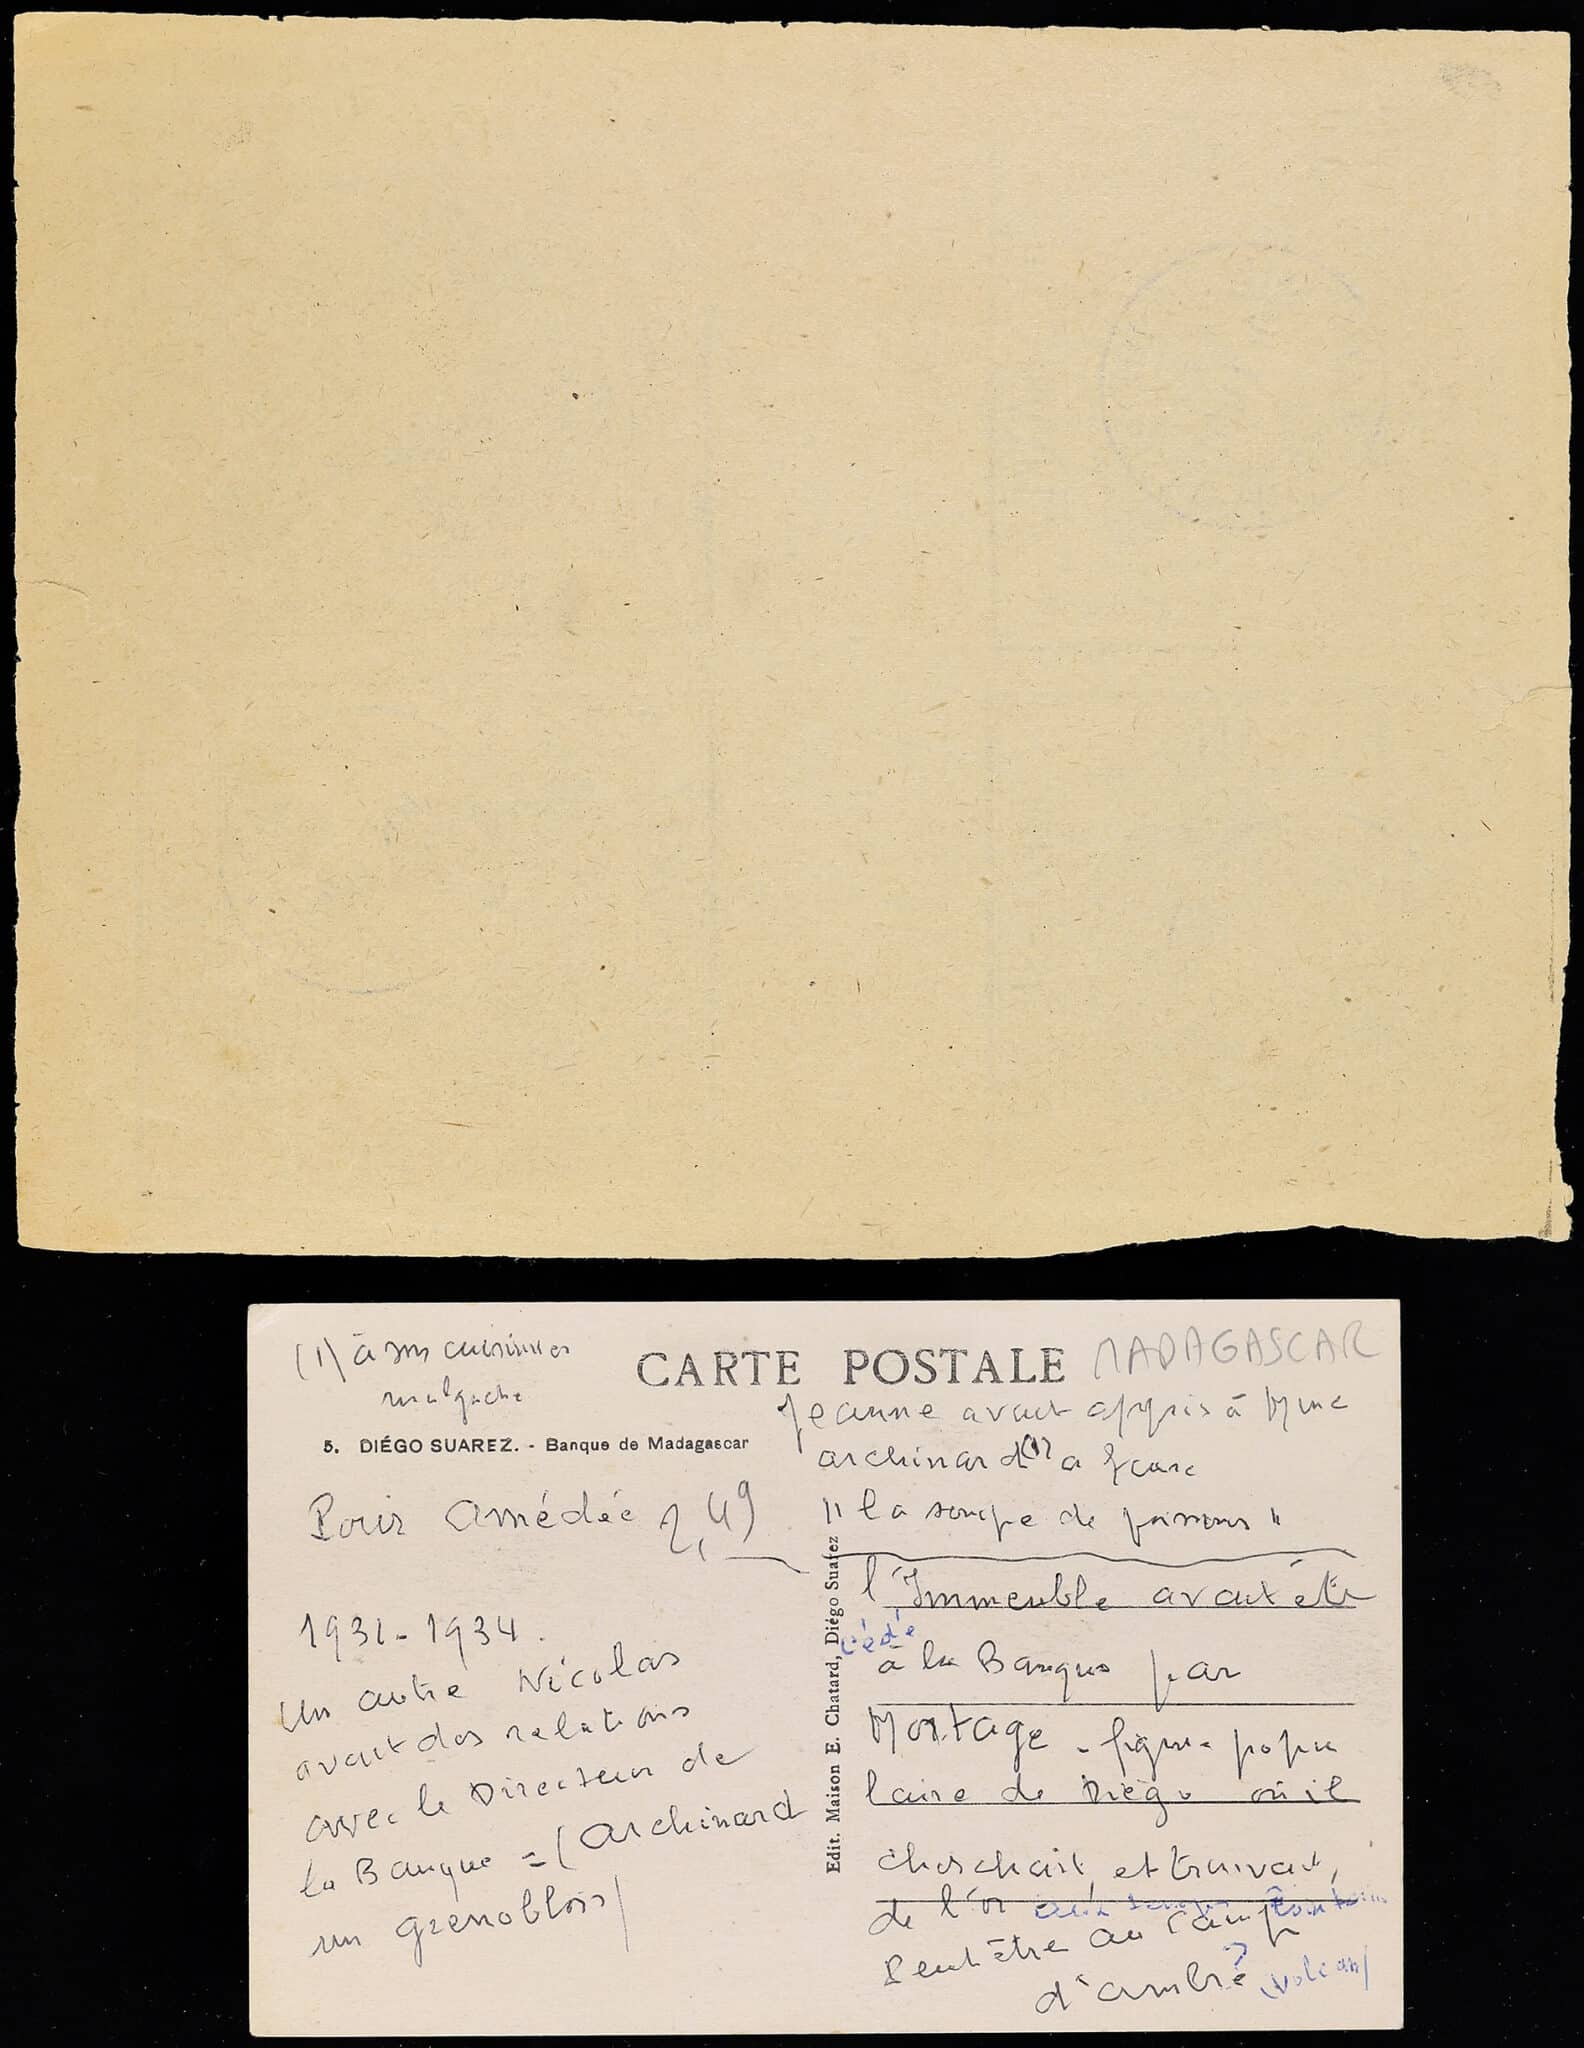 (1) à son cuisinier
malgache
CARTE POSTALE
MADAGASCAR
5. DIÉGO SUAREZ. - Banque de Madagascar
Pour Amédée 2,49
1931-1934.
Un autre Nicolas
avait des relations
avec le Directeur de
la Banque = (Archinard
un grenoblois)
Edit. Maison E. Chatard, Diégo Suarez
Jeanne avait appris à Mme
Archinard (1) a faire
"la soupe de poissons"
l'Immeuble avait été
cédé
à la Banque par
Mortage - figure popu
laire de Diégo où il
cherchait, et trouvait,
de l'or
Peut être au Camp
d'ambre ? (volcan)